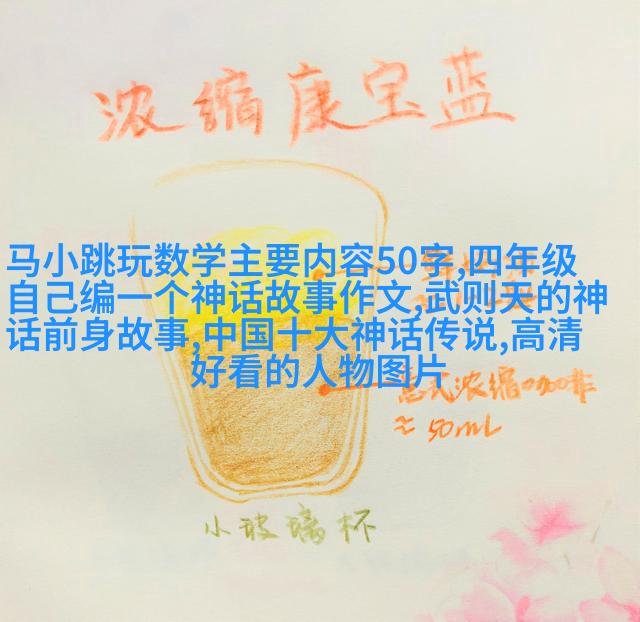 浓缩康宝蓝
马小跳玩数学主要内容50字,四年级
自己编一个神话故事作文,武则天的神
话前身故事,中国十大神话传说,高清
好看的人物图片
意式浓缩咖啡
≈50mL
小玻璃杯